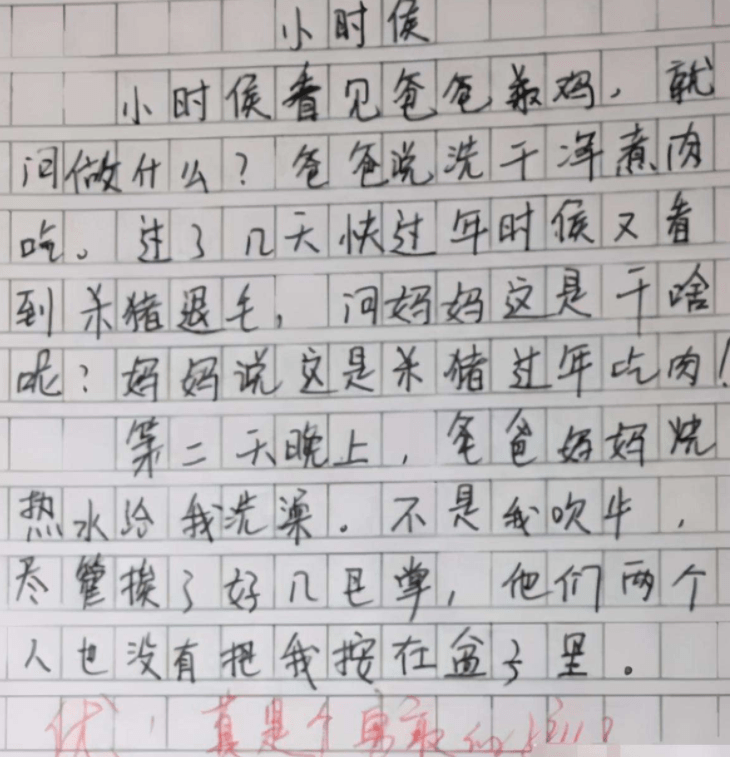 小时侯
小时侯看见爸爸杀鸡，就
问做什么？爸爸说洗干净煮肉
吃。过了几天快过年时侯又看
到杀猪退毛，问妈妈这是干啥
呢？妈妈说这是杀猪过年吃肉！
第二天晚上，爸爸妈妈烧
热水给我洗澡．不是我吹牛，
尽管挨了好几巴掌，他们两个
人也没有把我按在盆子里。
优！真是个勇敢的